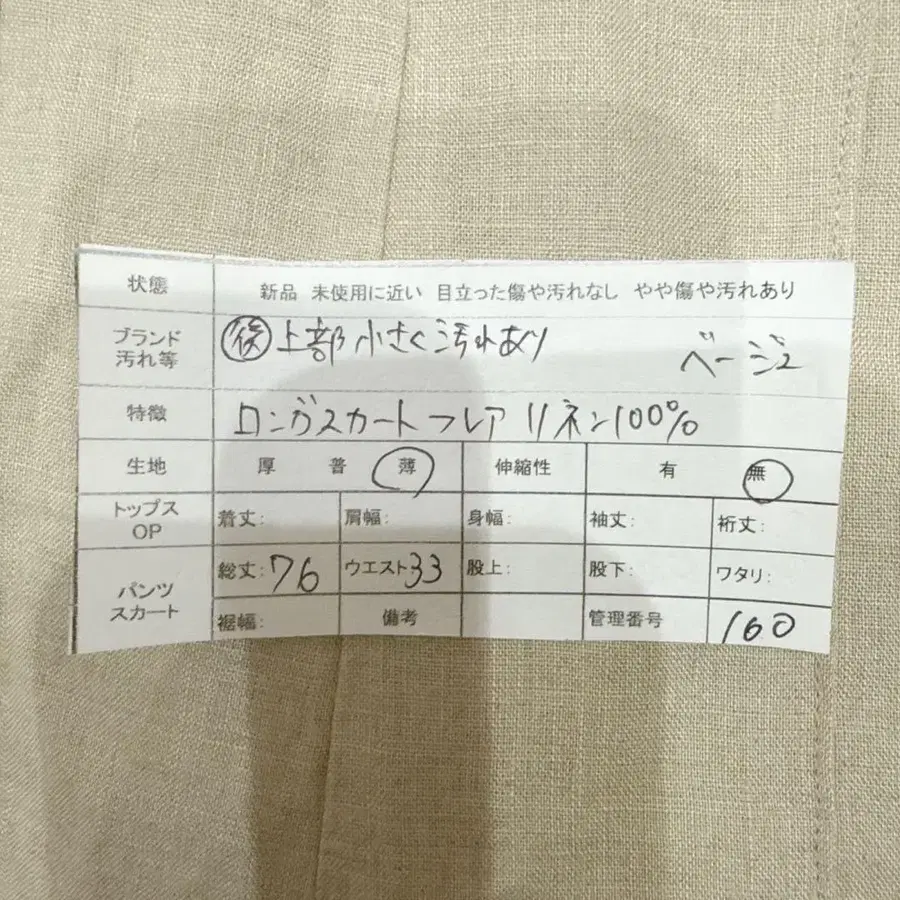 状態 新品 未使用に近い 目立った傷や汚れなし やや傷や汚れあり
ブランド 汚れ等 後 上部 小さく汚れあり ベージュ
特徴 ロングスカート フレア リネン100%
生地 厚 普 薄 伸縮性 有 無
トップス OP 着丈: 肩幅: 身幅: 袖丈: 裄丈:
パンツ スカート 総丈:76 ウエスト33 股上: 股下: ワタリ:
裾幅: 備考 管理番号 160